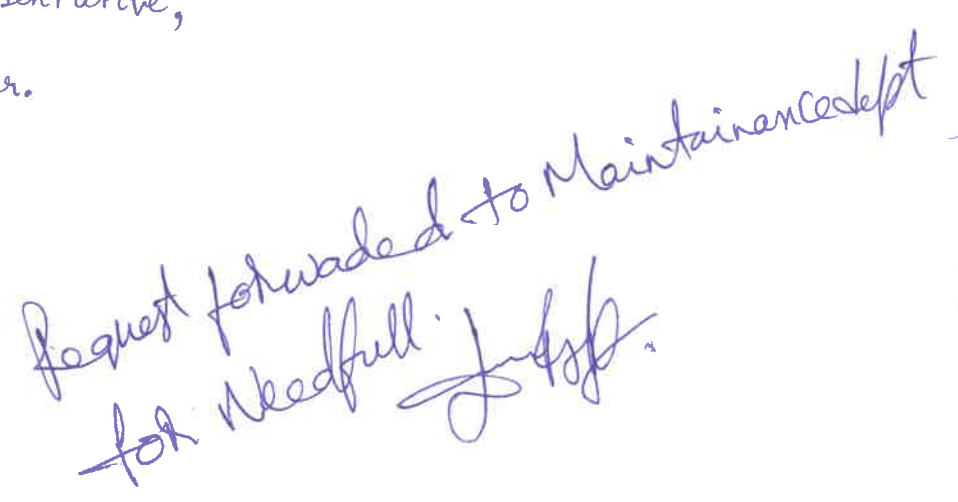 r.
Request forwaded to Maintainance dept
for Needfull.